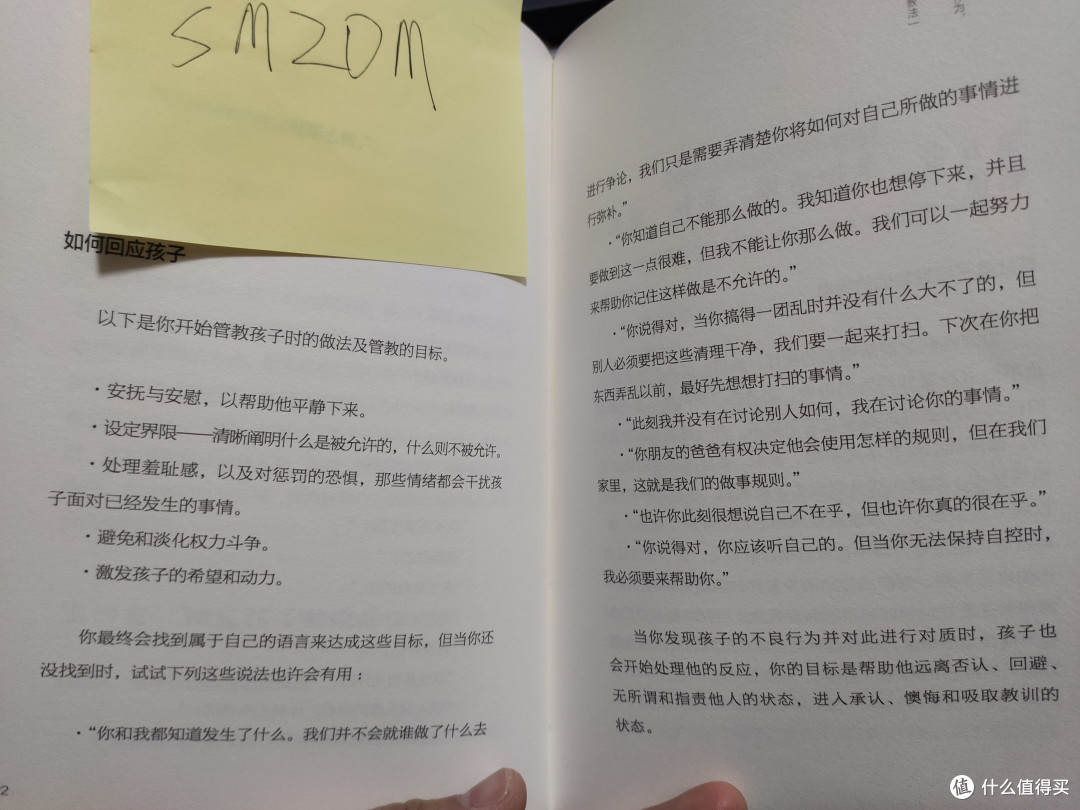 SMZDM
如何回应孩子
以下是你开始管教孩子时的做法及管教的目标。
·安抚与安慰，以帮助他平静下来。
·设定界限——清晰阐明什么是被允许的，什么则不被允许。
·处理羞耻感，以及对惩罚的恐惧，那些情绪都会干扰孩
子面对已经发生的事情。
·避免和淡化权力斗争。
·激发孩子的希望和动力。
你最终会找到属于自己的语言来达成这些目标，但当你还
没找到时，试试下列这些说法也许会有用：
·“你和我都知道发生了什么。我们并不会就谁做了什么去
2
为，
教法一
进行争论，我们只是需要弄清楚你将如何对自己所做的事情进
行弥补。”
·“你知道自己不能那么做的。我知道你也想停下来，并且
要做到这一点很难，但我不能让你那么做。我们可以一起努力
来帮助你记住这样做是不允许的。”
·“你说得对，当你搞得一团乱时并没有什么大不了的，但
别人必须要把这些清理干净，我们要一起来打扫。下次在你把
东西弄乱以前，最好先想想打扫的事情。”
·“此刻我并没有在讨论别人如何，我在讨论你的事情。”
·“你朋友的爸爸有权决定他会使用怎样的规则，但在我们
家里，这就是我们的做事规则。”
·“也许你此刻很想说自己不在乎，但也许你真的很在乎。”
·“你说得对，你应该听自己的。但当你无法保持自控时，
我必须要来帮助你。”
当你发现孩子的不良行为并对此进行对质时，孩子也
会开始处理他的反应，你的目标是帮助他远离否认、回避、
无所谓和指责他人的状态，进入承认、懊悔和吸取教训的
状态。
值 什么值得买